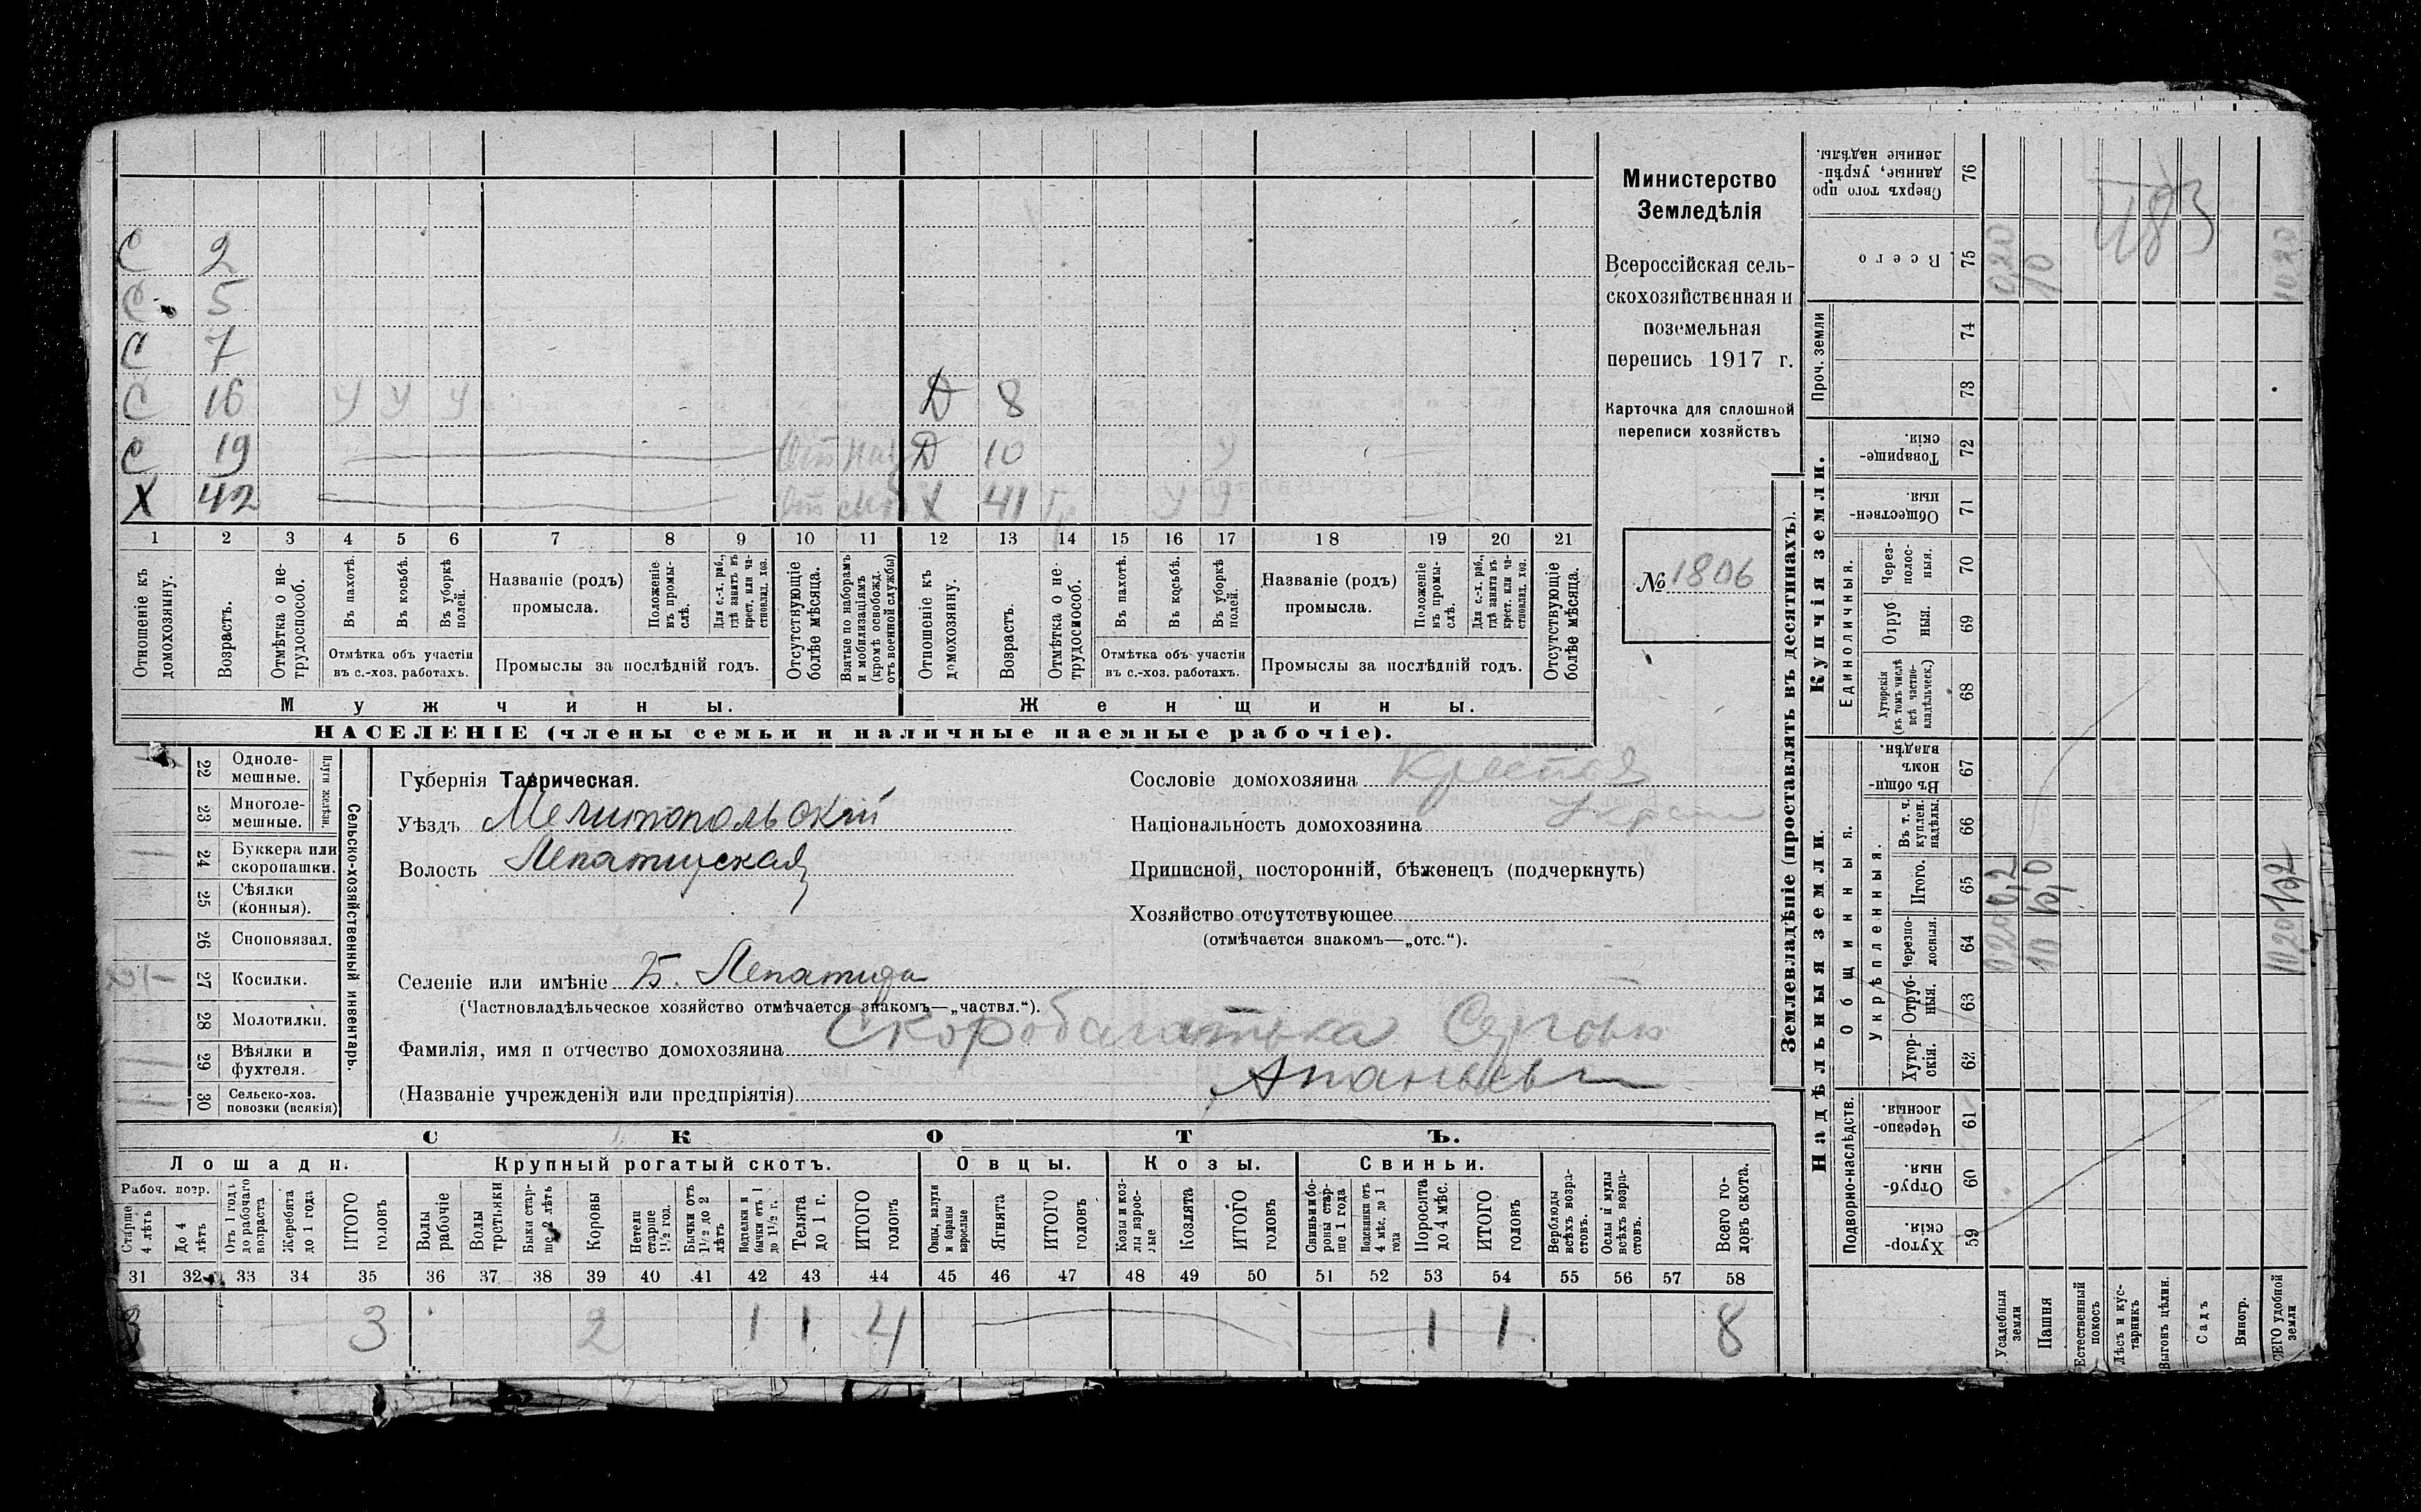 С 2
С 5
С 7
С 16 У У У Д 8
С 19 Д 10 У
Х 42 Х 41 У У
1 2 3 4 5 6 7 8 9 10 11 12 13 14 15 16 17 18 19 20 21
Отношеніе къ домохозяину.
Возрастъ.
Отмѣтка о не-трудоспособ.
Въ пахотѣ.
Въ косьбѣ.
Въ уборкѣ полей.
Отмѣтка объ участіи
въ с.-хоз. работахъ.
Названіе (родъ)
промысла.
Положеніе въ промы-слѣ.
Для с.-х. раб., гдѣ занятъ въ крест. или ча-стновлад. хоз.
Промыслы за послѣдній годъ.
Отсутствующіе болѣе мѣсяца.
Взятые по наборамъ и мобилизаціямъ (кромѣ освобожд. отъ военной службы)
Отношеніе къ домохозяину.
Возрастъ.
Отмѣтка о не-трудоспособ.
Въ пахотѣ.
Въ косьбѣ.
Въ уборкѣ полей.
Отмѣтка объ участіи
въ с.-хоз. работахъ.
Названіе (родъ)
промысла.
Положеніе въ промы-слѣ.
Для с.-х. раб., гдѣ занята въ крест. или ча-стновлад. хоз.
Промыслы за послѣдній годъ.
Отсутствующіе болѣе мѣсяца.
Мужчины. Женщины.
НАСЕЛЕНІЕ (члены семьи и наличные наемные рабочіе).
Министерство
Земледѣлія
Всероссійская сель-
скохозяйственная и
поземельная
перепись 1917 г.
Карточка для сплошной
переписи хозяйствъ
№ 1806
22 Одноле-мешные.
23 Многоле-мешные.
Плуги желѣзн.
24 Буккера или скоропашки.
25 Сѣялки (конныя).
26 Сноповязал.
27 Косилки.
28 Молотилки.
29 Вѣялки и фухтеля.
30 Сельско-хоз. повозки (всякія)
Сельско-хозяйственный инвентарь.
Губернія Таврическая.
Уѣздъ Мелитопольскій
Волость Лепатихская
Селеніе или имѣніе Б. Лепатиха
(Частновладѣльческое хозяйство отмѣчается знакомъ—„частвл.“).
Фамилія, имя и отчество домохозяина Скоробагатька Сергѣй
Ананьев
(Названіе учрежденія или предпріятія)
Сословіе домохозяина
Національность домохозяина
Приписной, посторонній, бѣженецъ (подчеркнуть)
Хозяйство отсутствующее
(отмѣчается знакомъ—„отс.“).
СКОТЪ.
Лошади. Крупный рогатый скотъ. Овцы. Козы. Свиньи.
Рабоч. возр.
Старше 4 лѣтъ
До 4 лѣтъ
Отъ 1 года до рабочаго возраста
Жеребята до 1 года
ИТОГО головъ
Волы рабочіе
Волы третьяки
Быки стар-ше 2 лѣтъ
Коровы
Нетели старше 1½ год.
Бычки отъ 1½ до 2 лѣтъ
Подтелки и бычки отъ 1 до 1½ г.
Телята до 1 г.
ИТОГО головъ
Овцы, валухи и бараны взрослые
Ягнята
ИТОГО головъ
Козы и коз-лы взрос-лые
Козлята
ИТОГО головъ
Свиньи и бо-ровы стар-ше 1 года
Подсвинки отъ 4 мѣс. до 1 года
Поросята до 4 мѣс.
ИТОГО головъ
Верблюды всѣхъ возра-стовъ.
Ослы и мулы всѣхъ возра-стовъ.
Всего го-ловъ скота.
31 32 33 34 35 36 37 38 39 40 41 42 43 44 45 46 47 48 49 50 51 52 53 54 55 56 57 58
3 3 2 1 1 4 1 1 8
Землевладѣніе (проставлять въ десятинахъ).
Купчія земли.
Надѣльныя земли.
Сверхъ того про данные, укрѣп-ленные надѣлы. 76
Всего 75 0,20 10 10 20
1183
Проч. земли 74
73
Товарище-скія. 72
Обществен-ныя. 71
Единоличныя.
Через-полос-ныя. 70
Отруб ныя. 69
Хуторскія (въ томъ числѣ всѣ частно-владѣльческ.) 68
Общинныя.
Въ общин-номъ владѣн. 67
Укрѣпленныя.
Въ т. ч. куплен. надѣлы. 66
Итого. 65 0,2 10,0 10,2
Черезпо-лосныя. 64 0,20 10 10,20
Отруб-ныя. 63
Хутор-скія. 62
Подворно-наслѣдств.
Черезпо-лосныя. 61
Отруб-ныя. 60
Хутор-скія. 59
Усадебныя земли
Пашня
Естественный покосъ
Лѣсъ и кус-тарникъ
Выгонъ цѣлин.
Садъ
Виногр.
ВСЕГО удобной земли